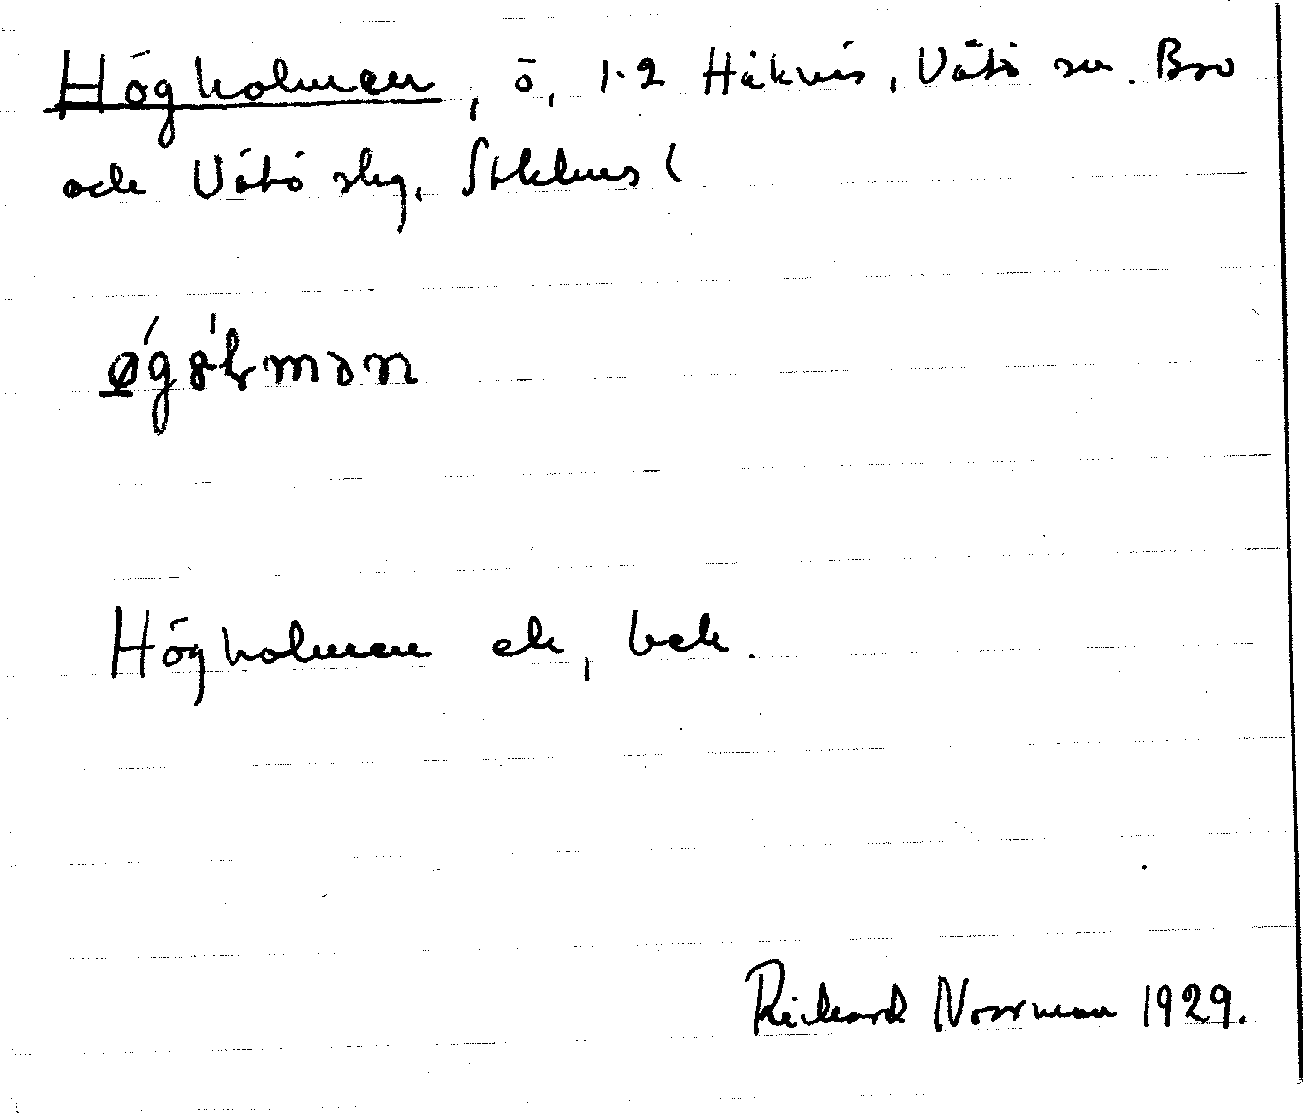 Högholmen, ö, 1-2 Håknäs, Vätö sn. Bro
och Vätö skg, Sthlms l
Högholmen ek, bek.
Rickard Norrman 1929.